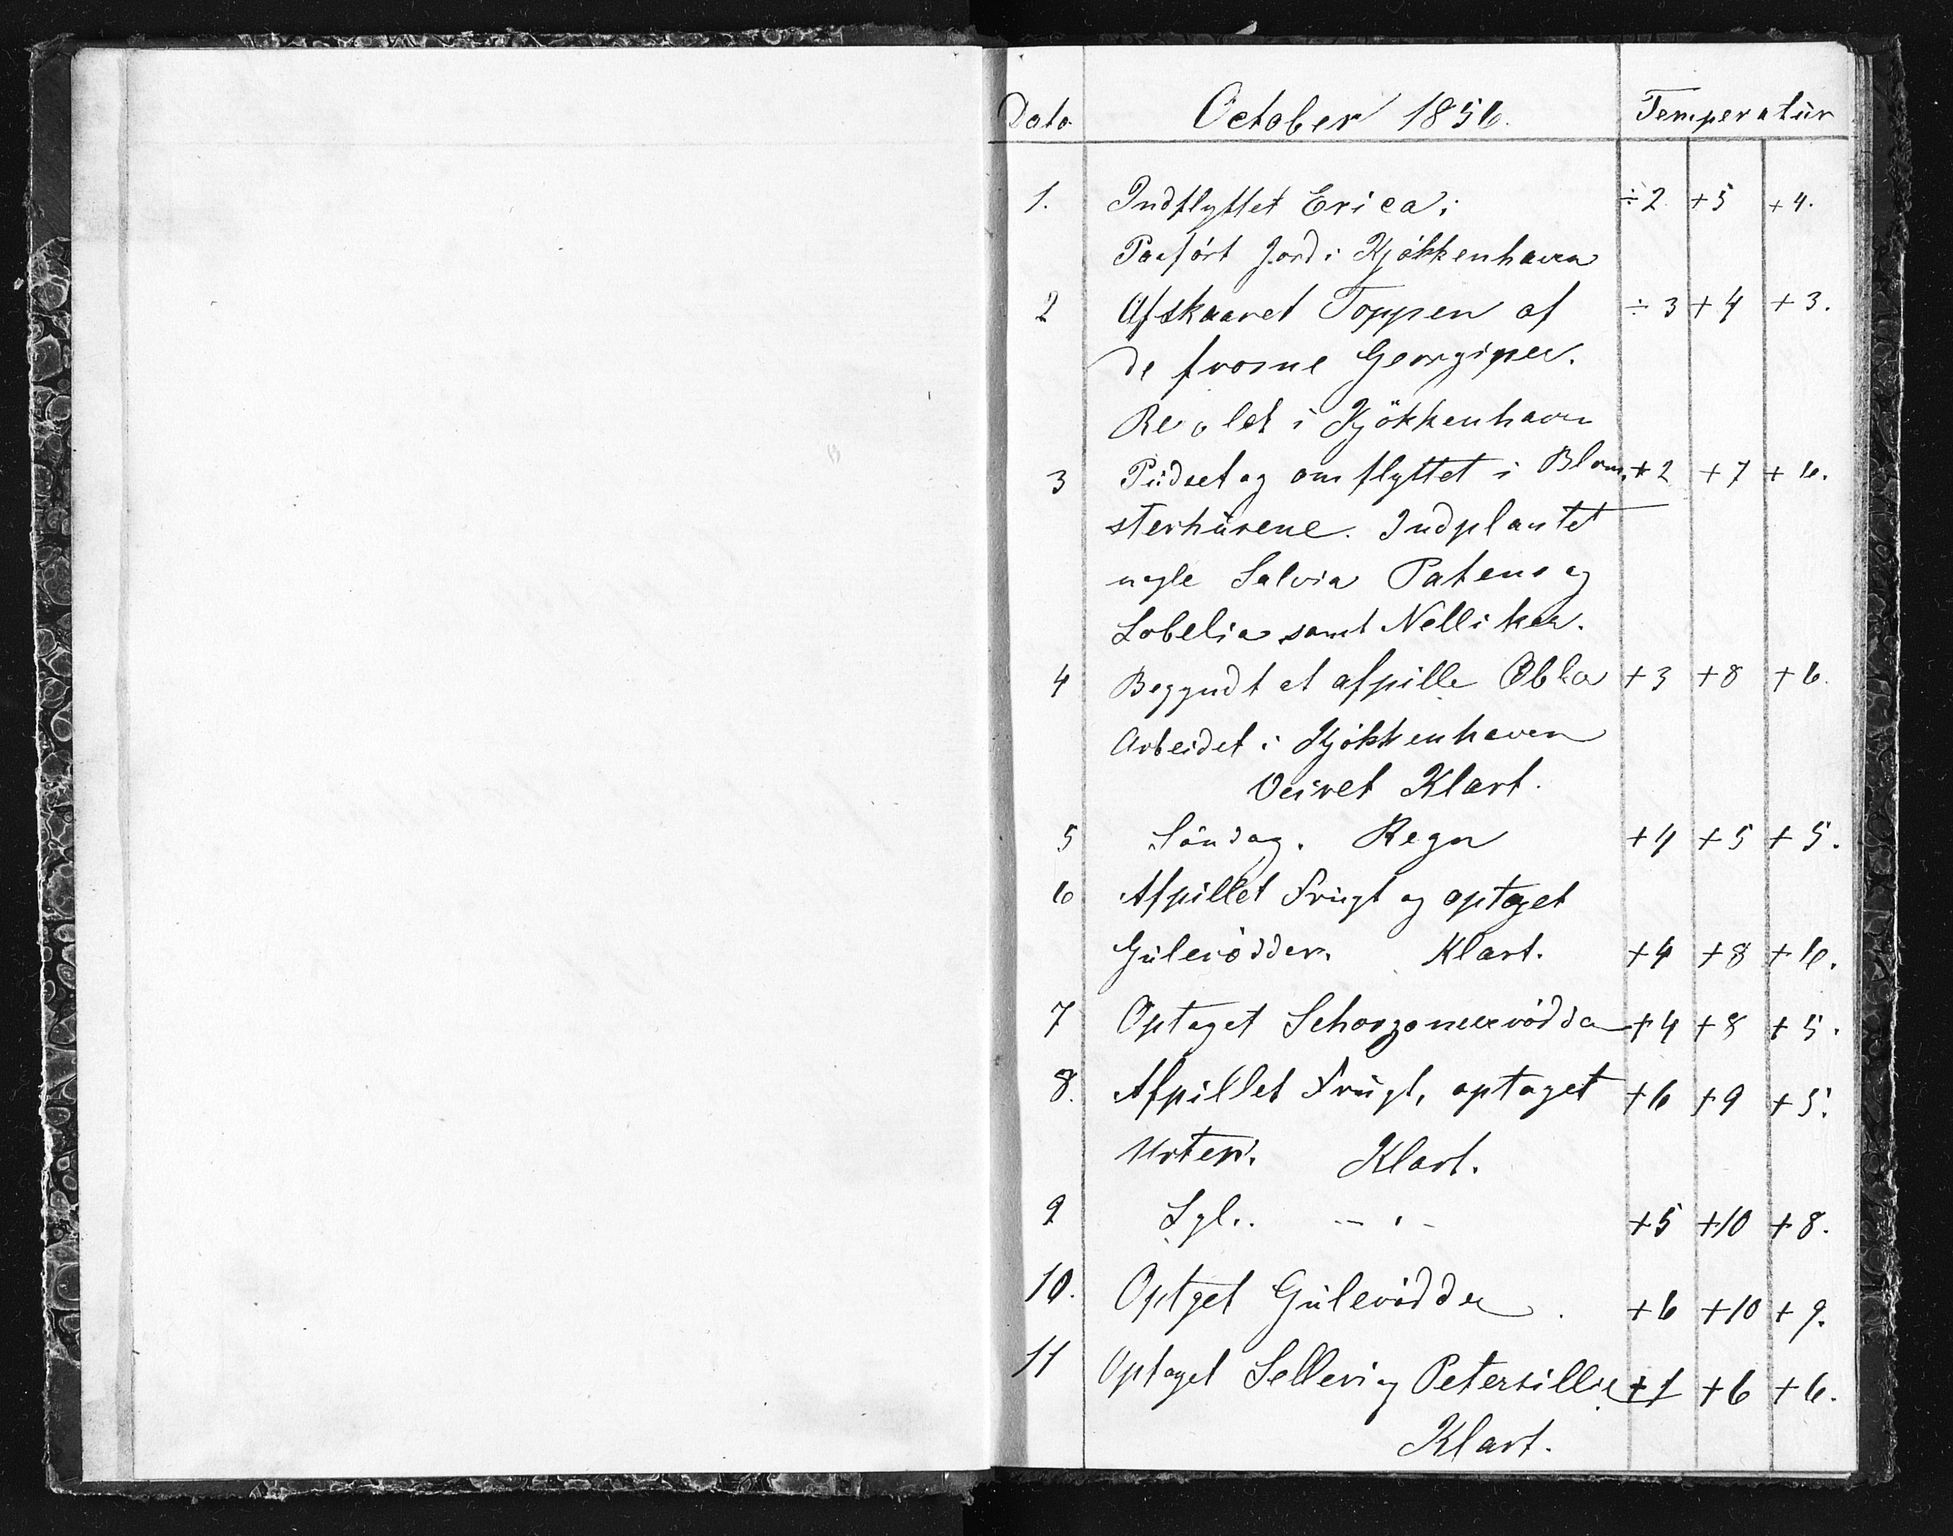 Dato October 1856. Temperatür
1. Indflyttet Erica; ÷2 +5 +4.
Paaført Jord i Kjökkenhaven
2 Afskaaret Toppen af ÷3 +4 +3.
de frosne Georginer.
Reolet i Kjökkenhaven
3 Püdset og omflyttet i Blom- +2 +7 +6.
sterhüsene. Indplantet
nogle Salvia Patens og
Lobelia samt Nelliker.
4 Begyndt at afpille Æbler +3 +8 +6.
Arbeidet i Kjökkenhaven
Veiret Klart.
5 Söndag. Regn +4 +5 +5.
6 Afpillet Frügt og optaget
Gülerödder. Klart. +4 +8 +6.
7 Optaget Schorzoneerrödder +4 +8 +5.
8. Afpillet Frügt, optaget +6 +9 +5.
Urter. Klart.
9 Lgl.. — " — +5 +10 +8.
10. Optget Gülerödder +6 +10 +9.
11 Optaget Selleri og Petersillie +1 +6 +6.
Klart.